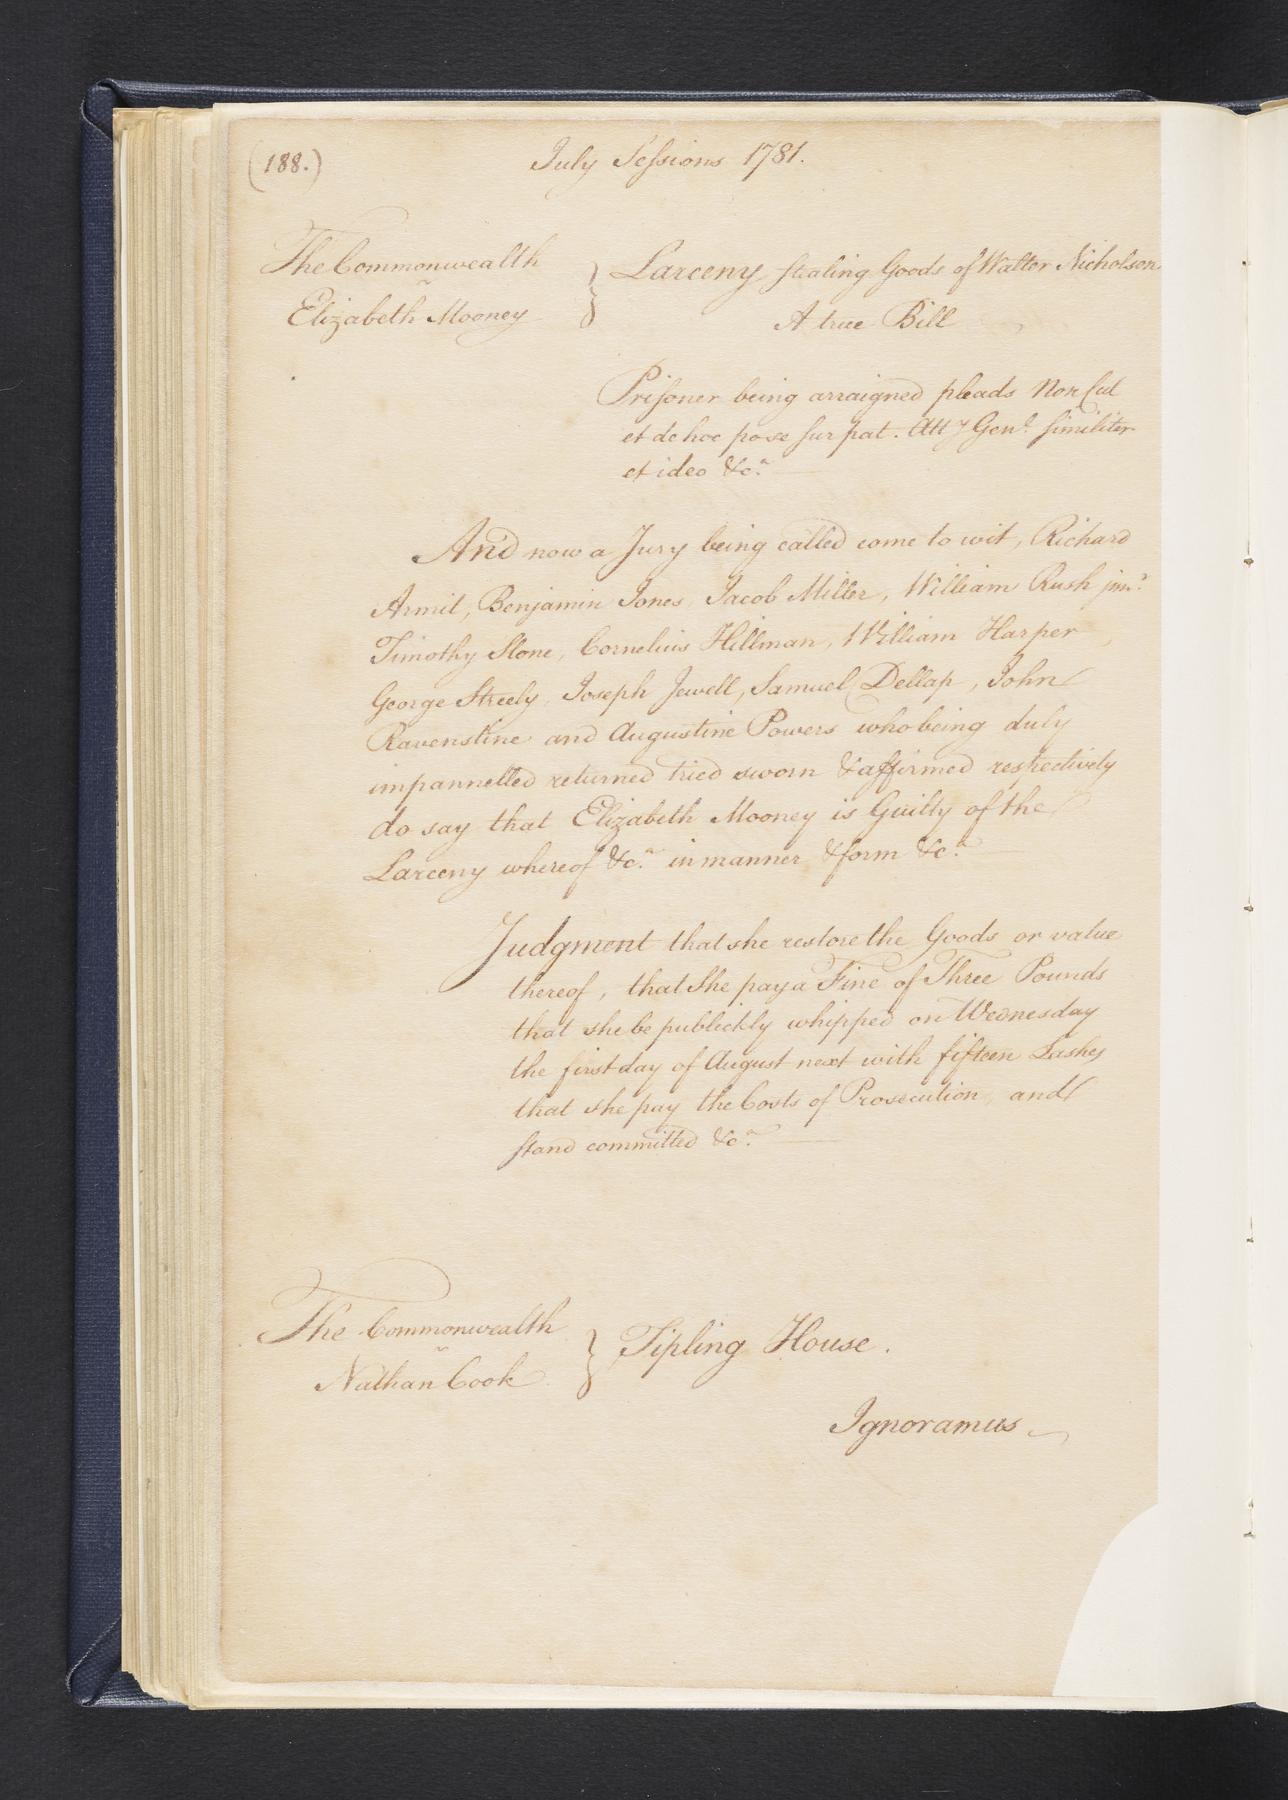 (188.)
July Sessions 1781.
The Commonwealth
Elizabeth Mooney
Larceny stealing Goods of Walter Nicholson
A true Bill
Prisoner being arraigned pleads Non Cul
et de hoc po se sur pat. Atty Genl. similiter
et ideo &ca.
And now a Jury being called come to wit, Richard
Armit, Benjamin Jones, Jacob Miller, William Rush junr.
Timothy Slone, Cornelius Hillman, William Harper
George Streely, Joseph Jewell, Samuel Dellap, John
Ravenstine and Augustine Powers who being duly
impannelled returned tried sworn & affirmed respectively
do say that Elizabeth Mooney is Guilty of the
Larceny whereof &ca. in manner & form &ca.
Judgment that she restore the Goods or value
thereof, that She pay a Fine of Three Pounds
that she be publickly whipped on Wednesday
the first day of August next with fifteen Lashes
that she pay the Costs of Prosecution, and
stand committed &ca.
The Commonwealth
Nathan Cook
Tipling House.
Ignoramus